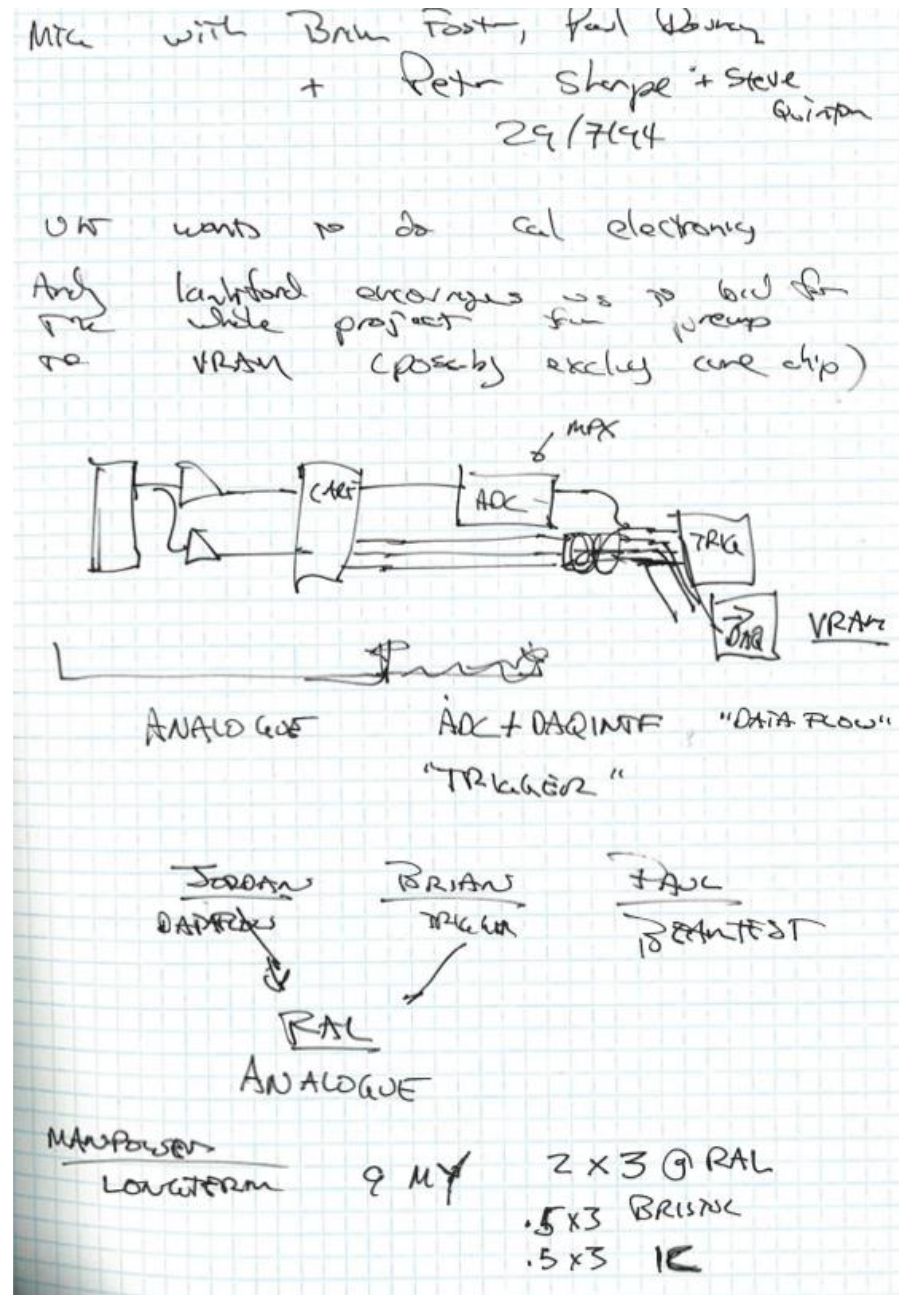 Mtg with Brian Foster, Paul
+ Peter Sharpe + Steve
Quinton
29/7/94
UK wants to do cal electronics
Andy Lankford encourages us to bid for
the whole project from preamp
to VRAM (possibly excluding chip)
MPX
CARE ADC TRIG
DAQ VRAM
ANALOGUE ADC + DAQ INTF "DATA FLOW"
"TRIGGER"
JORDAN BRIAN PAUL
DATAFLOW TRIGGER BEAMTEST
RAL
ANALOGUE
MANPOWER
LONGTERM 9 MY 2 x 3 @ RAL
.5 x 3 BRISTOL
.5 x 3 IC